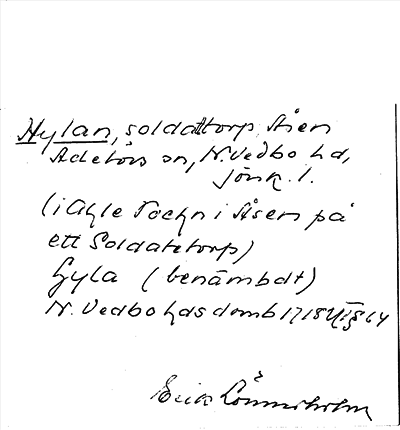 Hylan, soldattorp, Åsen
Adelövs sn, N. Vedbo hd,
Jönk. l.
(i Gyle Tockn i Åsen på
ett Soldatetorp)
Gyla (benämbdt)
N. Vedbo hds domb 1718 § 64
Erik Lönnerholm